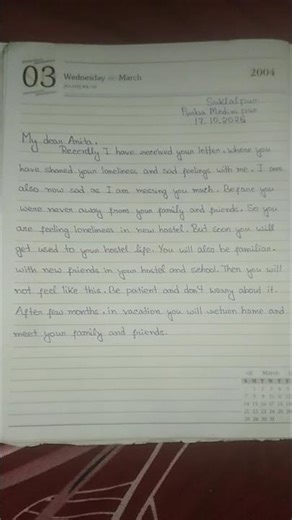 03 Wednesday March 2004
17.10.2025
My dear Anita,
Recently I have received your letter, where you
have shared your loneliness and sad feelings with me. I am
also now sad as I am missing you much. Before you
were never away from your family and friends. So you
are feeling loneliness in new hostel. But soon you will
get used to your hostel life. You will also be familiar
with new friends in your hostel and school. Then you will
not feel like this. Be patient and don't worry about it.
After few months, in vacation you will return home and
meet your family and friends.
March